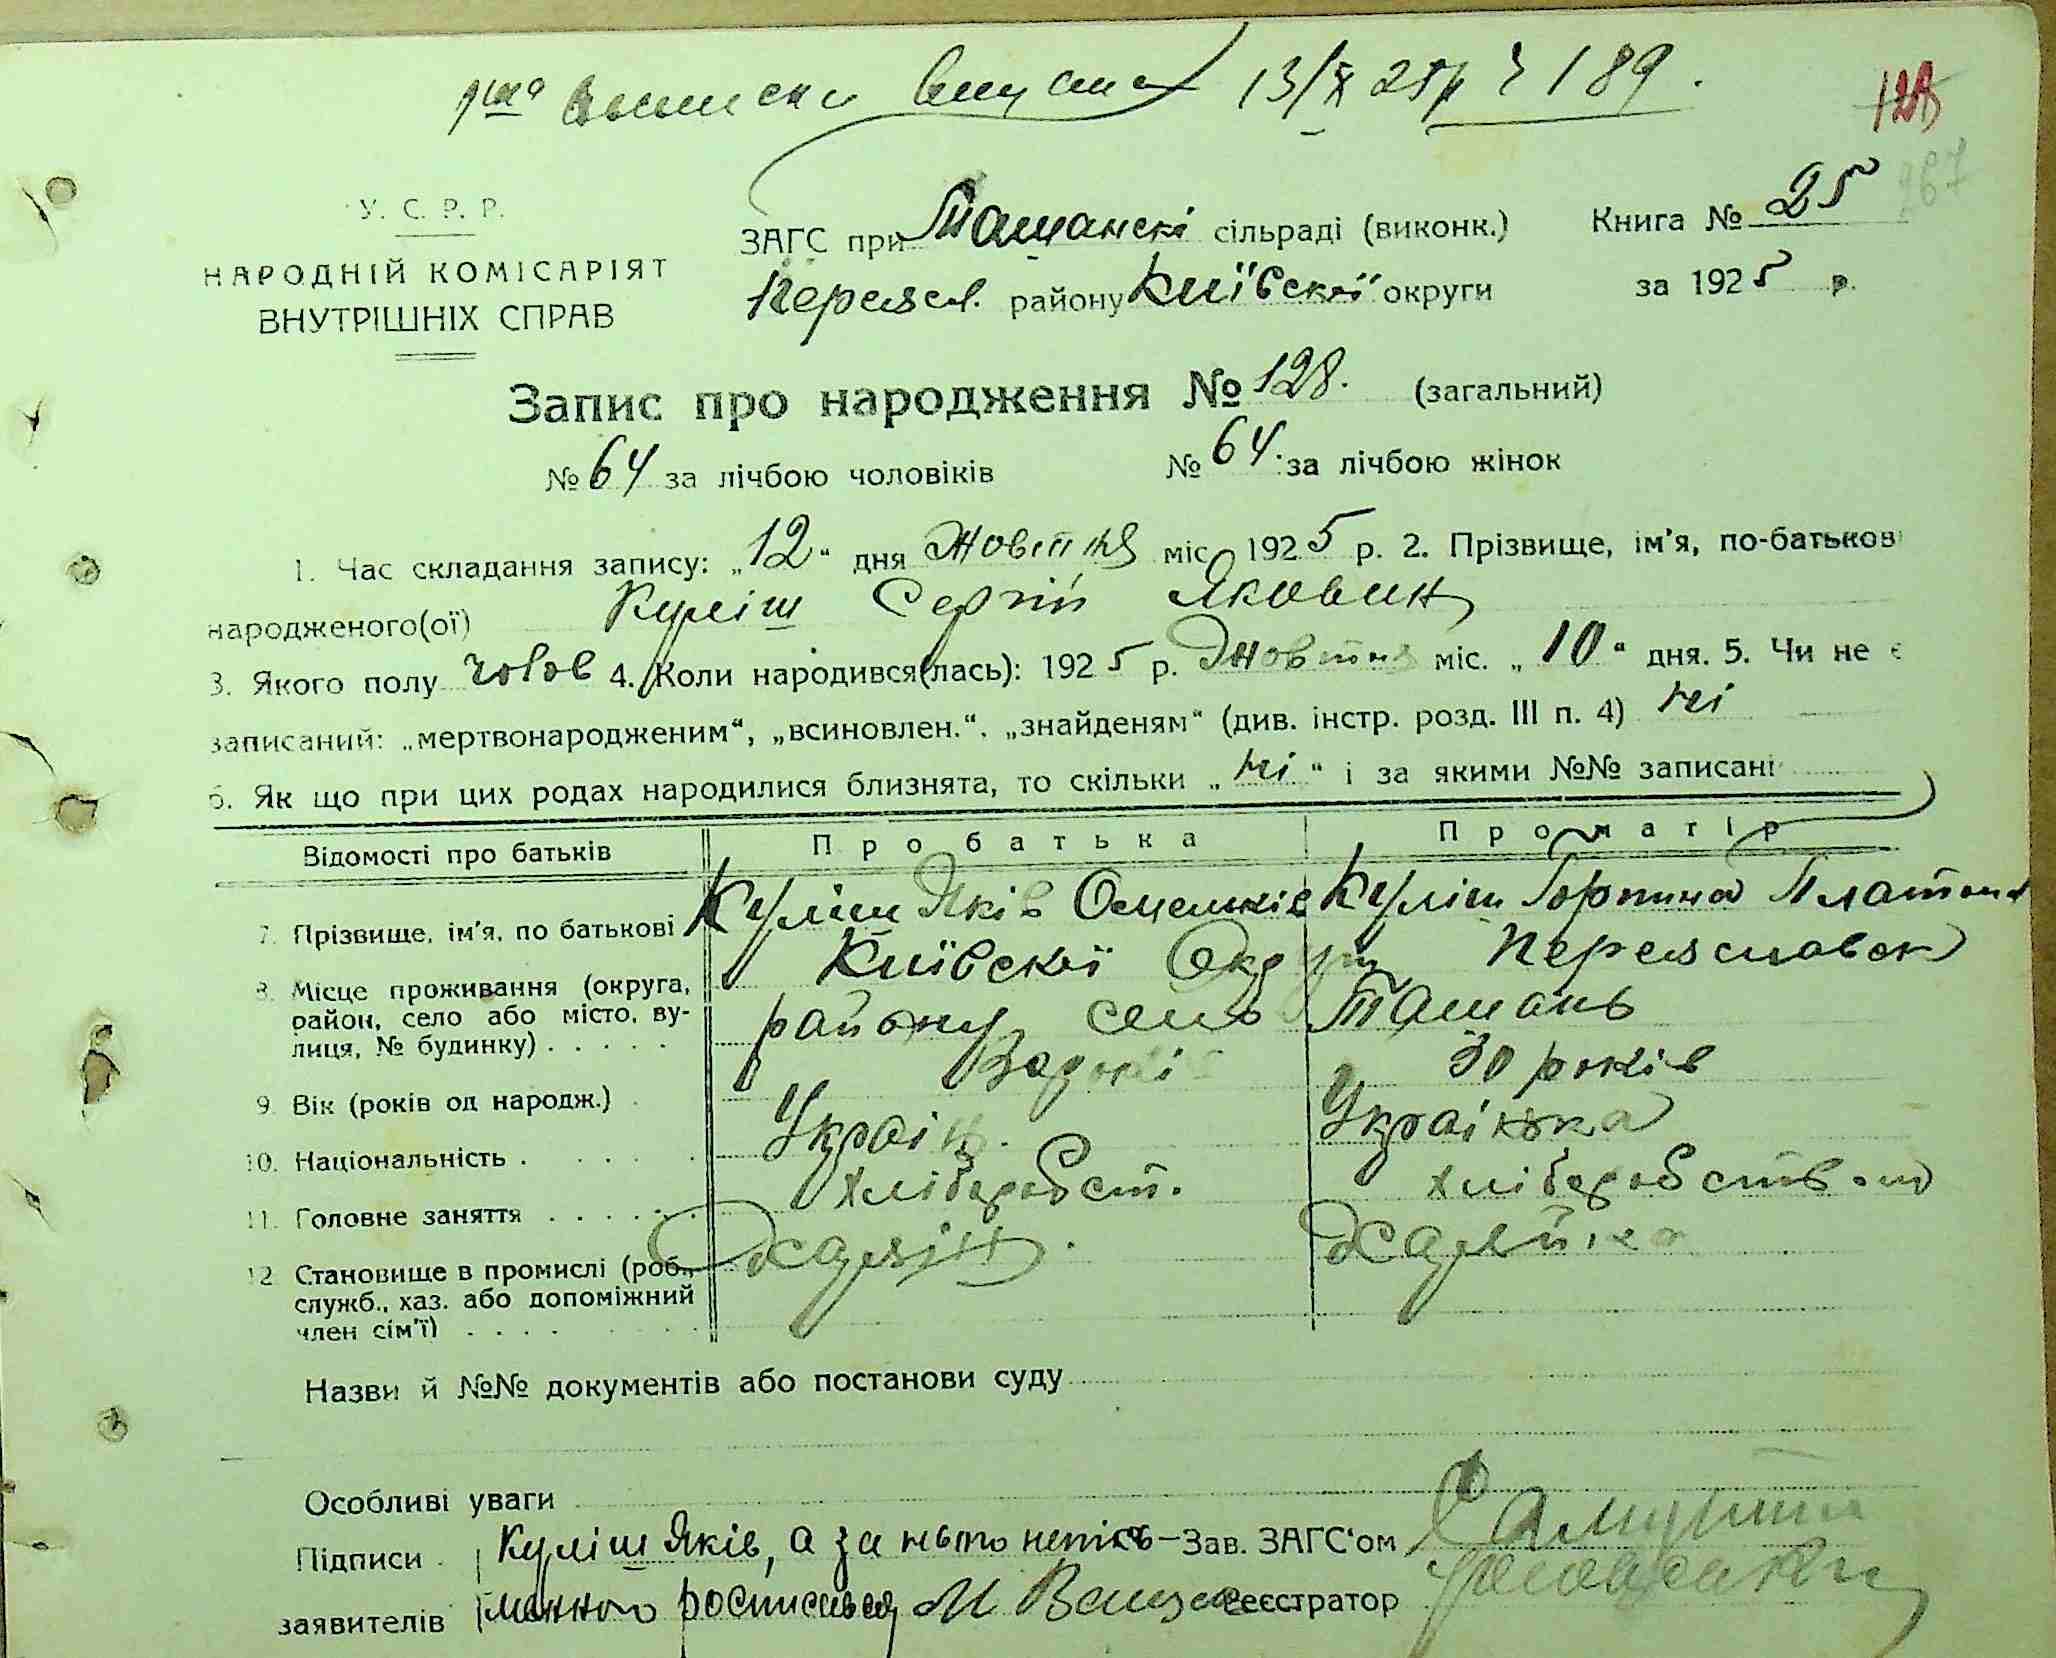 13/X 25 р № 189.
128
267
У. С. Р. Р.
НАРОДНІЙ КОМІСАРІЯТ
ВНУТРІШНІХ СПРАВ
ЗАГС при Ташанскі сільраді (виконк.)
Переясл. району Київскої округи
Книга № 25
за 1925 р.
Запис про народження № 128. (загальний)
№ 64 за лічбою чоловіків № 64. за лічбою жінок
1. Час складання запису: „12“ дня Жовтня міс 1925 р. 2. Прізвище, ім'я, по-батькові
народженого(ої) Куліш Сергій Яковин
3. Якого полу чолов 4. Коли народився(лась): 1925 р. Жовтня міс. „10“ дня. 5. Чи не є
записаний: „мертвонародженим“, „всиновлен.“, „знайденям“ (див. інстр. розд. III п. 4) ні
6. Як що при цих родах народилися близнята, то скільки „ні“ і за якими №№ записані
Відомості про батьків Про батька Про матір
7. Прізвище, ім'я, по батькові Куліш Яків Омельків Куліш Горпина Платон
8. Місце проживання (округа, Київскої Округи Переяславск
район, село або місто, ву- району село Ташань
лиця, № будинку) . . . . .
9. Вік (років од народж.) . 30 років
10. Національність . . . . . Україн. Українка
11. Головне заняття . . . . . хліборобст. хліборобством
12 Становище в промислі (роб., Хазяїн. Хазяйка
служб., хаз. або допоміжний
член сім'ї) . . . .
Назви й №№ документів або постанови суду
Особливі уваги
Підписи Куліш Яків, а за нього непись- Зав. ЗАГС'ом
заявителів менного росписався М Реєстратор